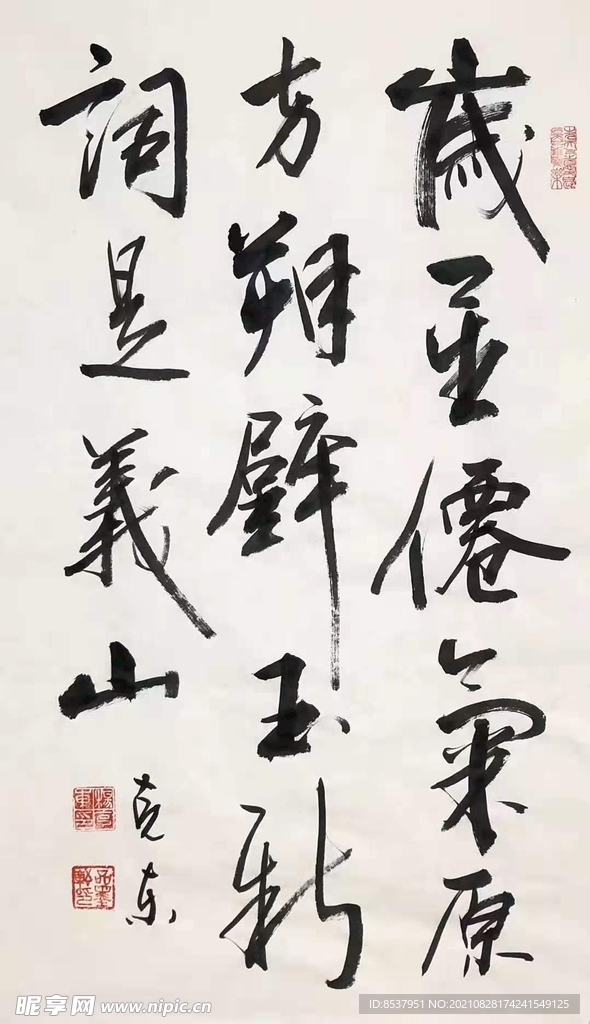 歲星僊氣原
方朔璧玉新
詞是義山
克东
昵享网 www.nipic.cn
ID:8537951 NO:20210828174241549125